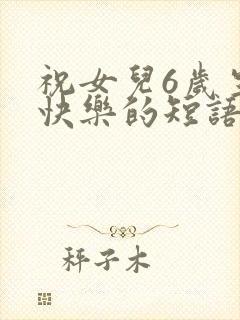 祝女兒6歲生
快樂的短語
秤子木